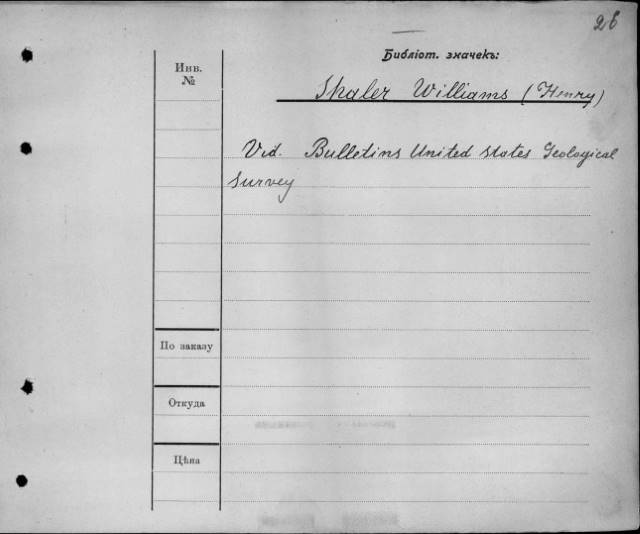 26
Библіот. значекъ:
Инв.
№
Shaler Williams (Henry)
Vid. Bulletins United States Geological
Survey
По заказу
Откуда
Цѣна